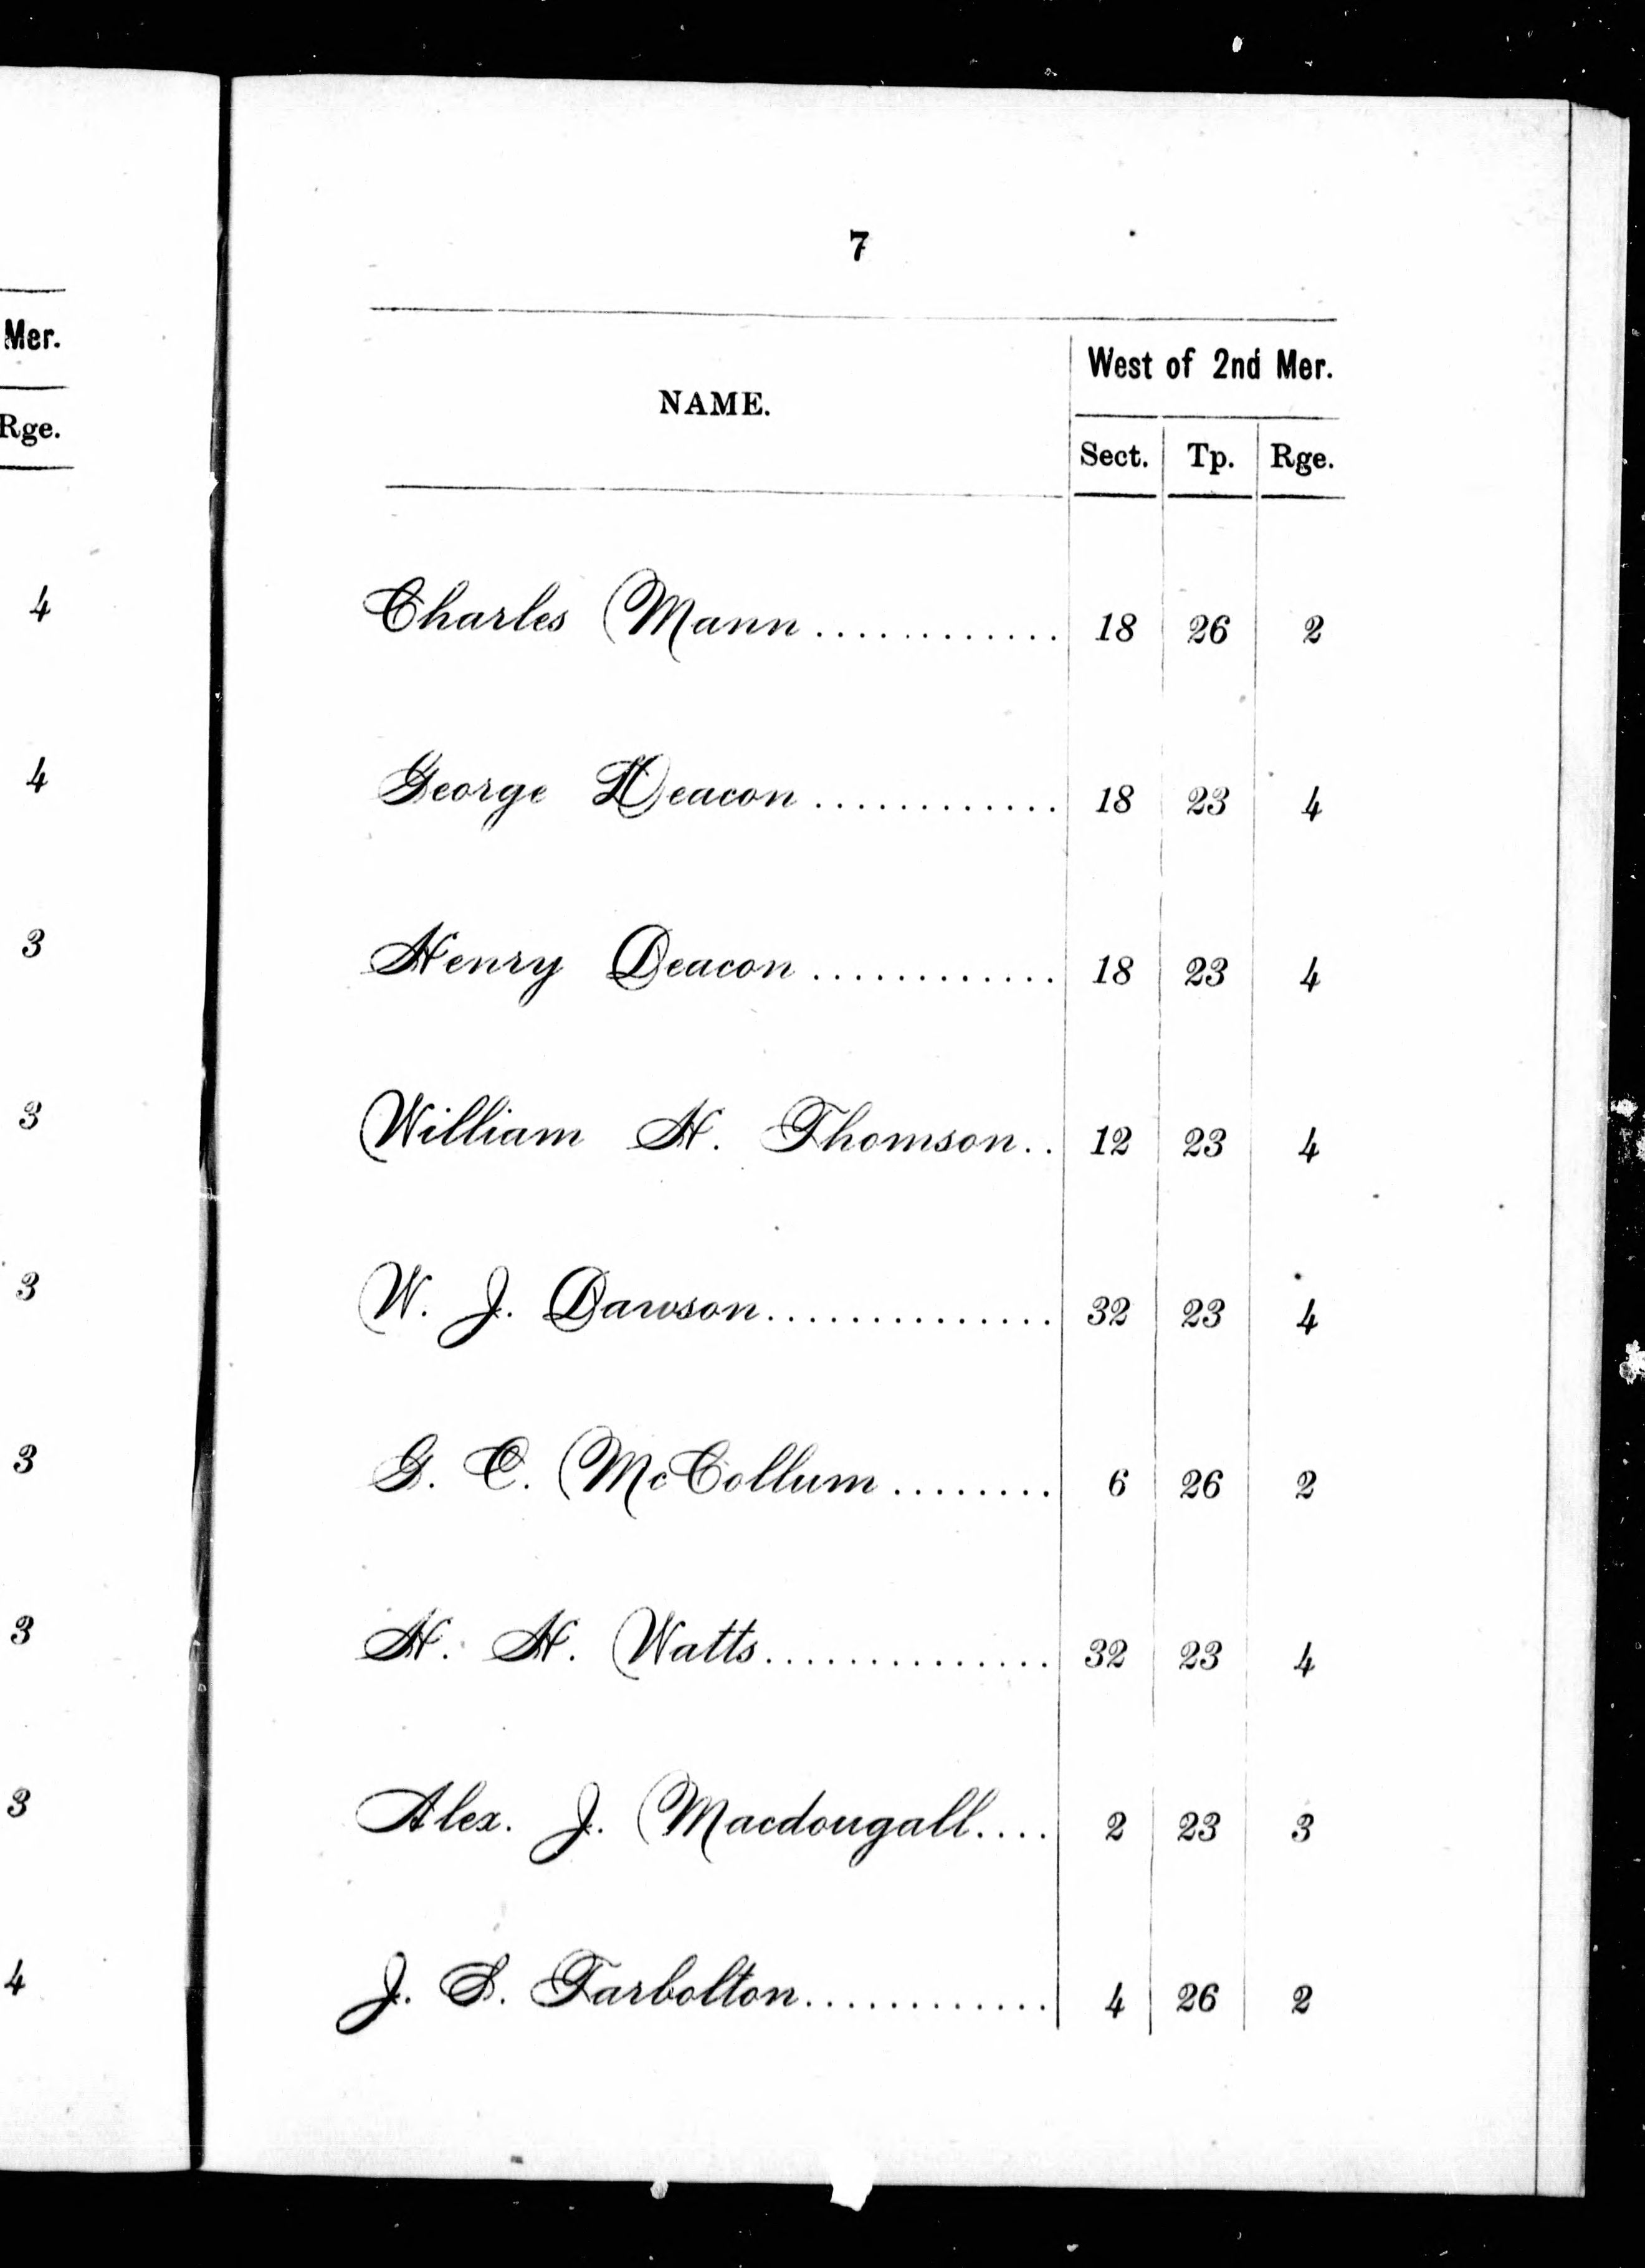 Mer.
Rge.
4
4
3
3
3
3
3
3
4
7
NAME.
West of 2nd Mer.
Sect. Tp. Rge.
Charles Mann............ 18 26 2
George Deacon............ 18 23 4
Henry Deacon............ 18 23 4
William H. Thomson.. 12 23 4
W. J. Dawson.............. 32 23 4
G. C. McCollum........ 6 26 2
H. H. Watts.............. 32 23 4
Alex. J. Macdougall.... 2 23 3
J. S. Tarbolton............ 4 26 2